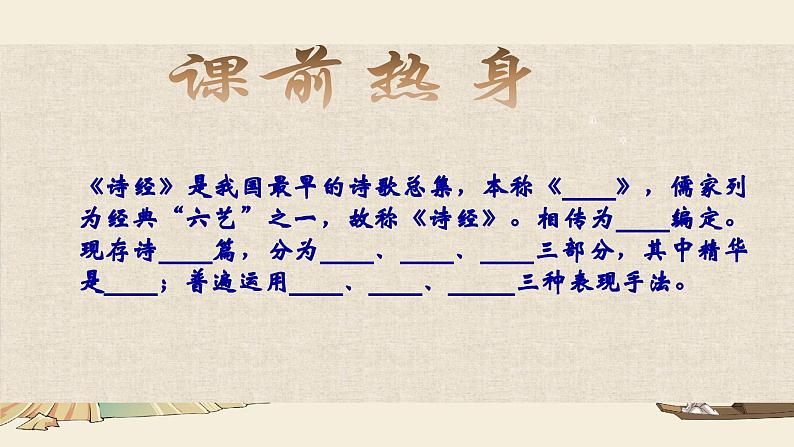 课前热身
《诗经》是我国最早的诗歌总集，本称《____》，儒家列
为经典“六艺”之一，故称《诗经》。相传为____编定。
现存诗____篇，分为____、____、____三部分，其中精华
是____；普遍运用____、____、_____三种表现手法。